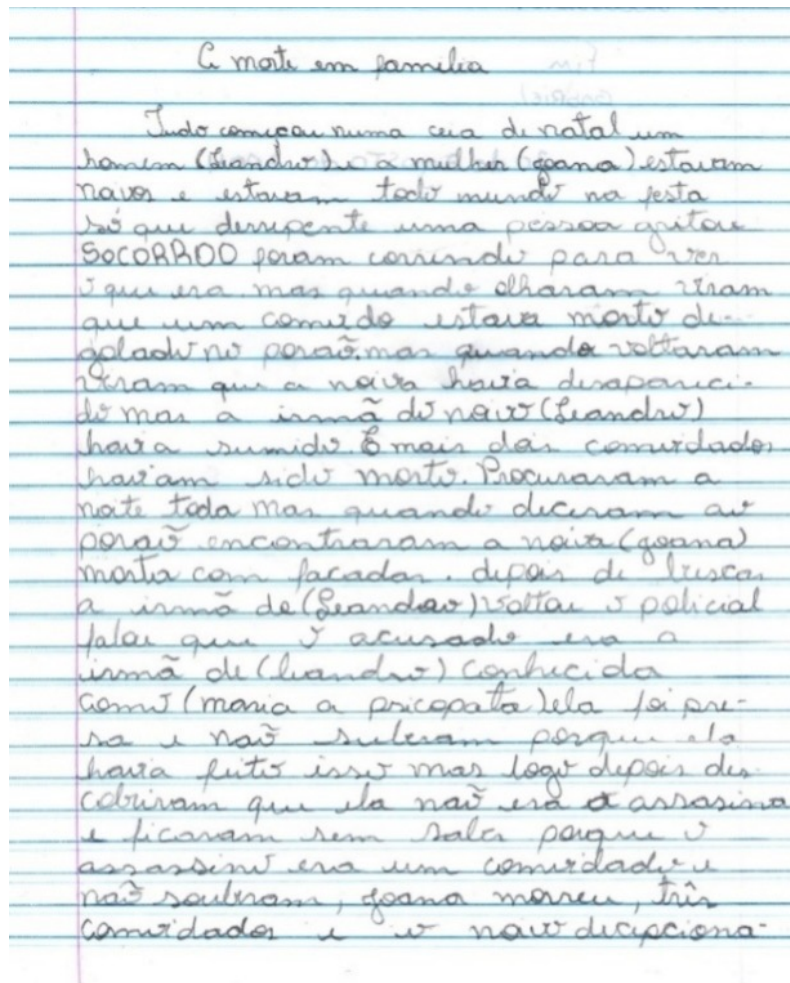 A morte em familia
Tudo começou numa ceia de natal um
homem (Leandro) e a mulher (joana) estavam
noivos e estavam todo mundo na festa
só que derrepente uma pessoa gritou
SOCORRDO foram correndo para ver
o que era. mas quando olharam viram
que um convido estava morto de-
golado no poraõ. mas quando voltaram
viram que a noiva havia desapareci-
do mas a irmã do noivo (Leandro)
havia sumido. E mais dois convidados
haviam sido morto. Procuraram a
noite toda mas quando deceram ao
poraõ encontraram a noiva (joana)
morta com facadas. depois de buscar
a irmã de (Leandro) voltou o policial
falou que o acusado era a
irmã de (leandro) conhecida
como (maria a psicopata) ela foi pre-
sa e naõ suberam porque ela
havia feito isso mas logo depois des-
cobriram que ela naõ era a assasina
e ficaram sem saber porque o
assassino era um convidado e
naõ souberam, joana morreu, três
convidados e o noivo decipciona-
fim
Gabriel